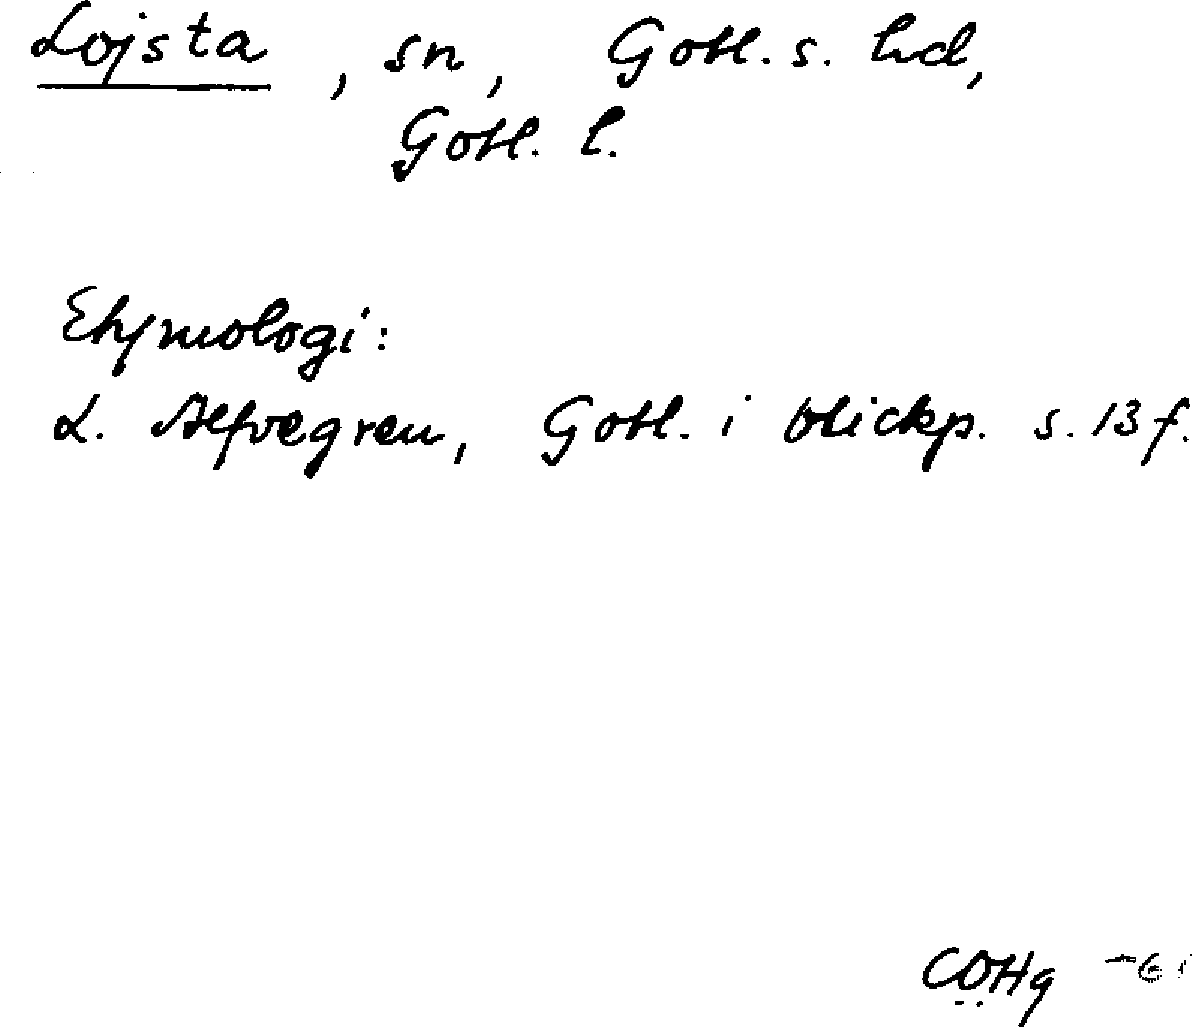 Lojsta, sn, Gotl. s. hd,
Gotl. l.
Etymologi:
L. Alfvegren, Gotl. i blickp. s. 13 f.
COHg